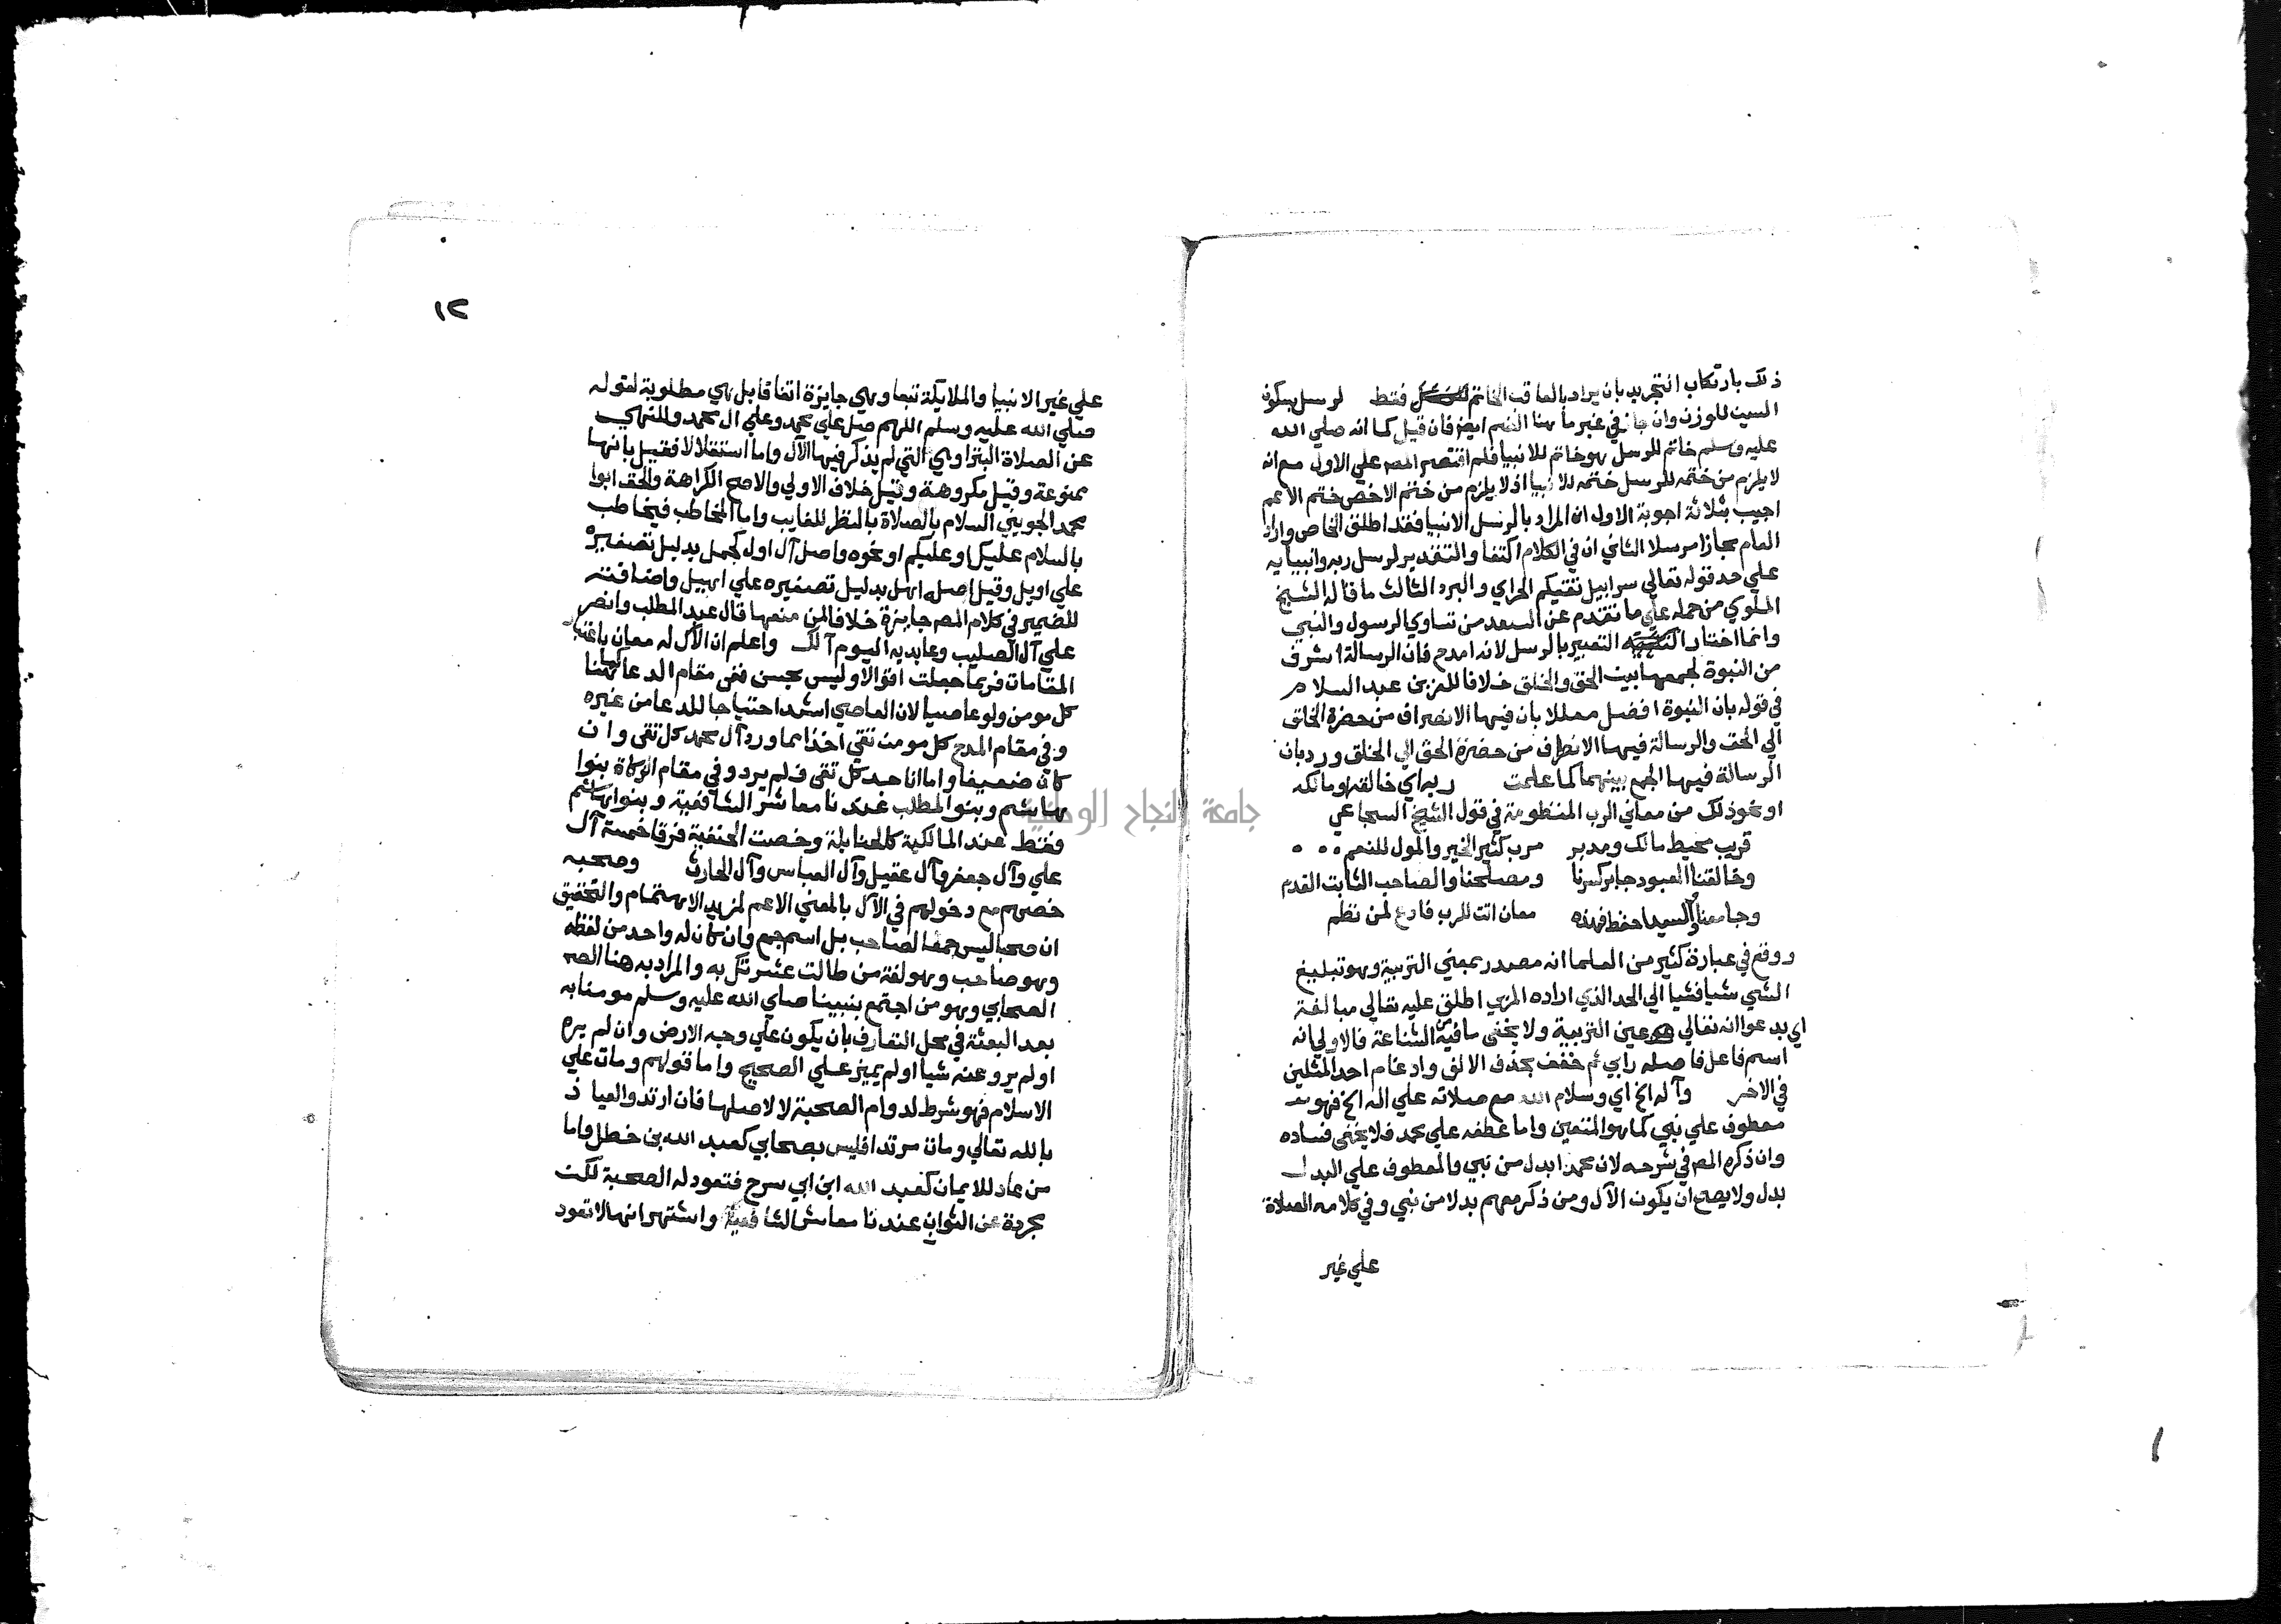 ذلك بارتكاب التجريد بان يراد بالعاقب الخاتم فقط لرسل بسكون
السين للوزن وان جاز في غير ما هنا الضم ايضا فان قيل كما انه صلي الله
عليه وسلم خاتم للرسل هو خاتم للانبيا فلم اقتصر المصر علي الاول مع انه
لا يلزم من ختمه للرسل ختمه للانبيا اذ لا يلزم من ختم الاخص ختم الاعم
اجيب بثلاثة اجوبة الاول ان المراد بالرسل الانبيا فقد اطلق الخاص واراد
العام مجازا مرسلا الثاني ان في الكلام اكتفا والتقدير لرسل ربه وانبيايه
علي حد قوله تعالي سرابيل تقيكم الحر اي والبرد الثالث ما قاله الشيخ
الملوي من حمله علي ما تقدم عن السعد من تساوي الرسول والنبي
وانما اختار التعبير بالرسل لانه امدح فان الرسالة اشرف
من النبوة لجمعها بين الحق والخلق خلافا للعز بن عبد السلام
في قوله بان النبوة افضل معللا بان فيها الانصراف من حضرة الخلق
الي الحق والرسالة فيها الانصراف من حضرة الحق الي الخلق ورد بان
الرسالة فيها الجمع بينهما كما علمت ربه اي خالقه او مالكه
او نحو ذلك من معاني الرب المنظومة في قول الشيخ السجاعي
قريب محيط مالك ومدبر مرب كثير الخير والمول للنعم
وخالقنا المعبود جابر كسرنا ومصلحنا والصاحب الثابت القدم
وجامعنا والسيد احفظ فهذه معان اتت للرب فادع لمن نظم
ووقع في عبارة كثير من العلما انه مصدر بمعني التربية وهو تبليغ
الشي شيا فشيا الي الحد الذي اراده المربي اطلق عليه تعالي مبالغة
اي بدعوا انه تعالي عين التربية ولا يخفي ما فيه من الشناعة فالاولي انه
اسم فاعل فاصله رابي ثم خفف بحذف الالف وادغام احد المثلين
في الاخر وآله الخ اي وسلام الله مع صلاته علي اله الخ فهو
معطوف علي نبي كما هو المتعين واما عطفه علي محمد فلا يخفي فساده
وان ذكره المصر في شرحه لان محمدا بدل من نبي والمعطوف علي البدل
بدل ولا يصح ان يكون الآل ومن ذكر معهم بدلا من نبي وفي كلامه الصلاة
علي غير
١٢
علي غير الانبيا والملايكة تبعا وهي جايزة اتفاقا بل هي مطلوبة لقوله
صلي الله عليه وسلم اللهم صل علي محمد وعلي ال محمد وللنهي
عن الصلاة البترا وهي التي لم يذكر فيها الآل واما استقلالا فقيل بانها
ممنوعة وقيل مكروهة وقيل خلاف الاولي والاصح الكراهة والحق ابوا
محمد الجويني السلام بالصلاة بالنظر للغايب واما المخاطب فيخاطب
بالسلام عليك او عليكم او نحوه واصل آل اول كجمل بدليل تصغيره
علي اويل وقيل اصله اهل بدليل تصغيره علي اهيل واضافته
للضمير في كلام المصر جايزة خلافا لمن منعها قال عبد المطلب وانصر
علي آل الصليب وعابديه اليوم آلك واعلم ان الآل له معان باعتبار
المقامات فربما جعلت اقوالا وليس بحسن ففي مقام الدعا كما هنا
كل مومن ولو عاصيا لان العاصي اشد احتياجا للدعا من غيره
وفي مقام المدح كل مومن تقي اخذا مما ورد آل محمد كل تقي وان
كان ضعيفا واما انا جد كل تقي فلم يرد وفي مقام الزكاة بنوا
هاشم وبنوا المطلب عندنا معاشر الشافعية وبنوا هاشم
فقط عند المالكية كالحنابلة وخصت الحنفية فرقا خمسة آل
علي وآل جعفر وآل عقيل وآل العباس وآل الحارث وصحبه
خصهم مع دخولهم في الآل بالمعني الاعم لمزيد الاهتمام والتحقيق
ان صحبا ليس جمعا لصاحب بل اسم جمع وان كان له واحد من لفظه
وهو صاحب وهو لغة من طالت عشرتك به والمراد به هنا
الصحابي وهو من اجتمع بنبينا صلي الله عليه وسلم مومنا به
بعد البعثة في محل التعارف بان يكون علي وجه الارض وان لم يره
او لم يرو عنه شيا او لم يميز علي الصحيح واما قولهم ومات علي
الاسلام فهو شرط لدوام الصحبة لا لاصلها فان ارتد والعياذ
بالله تعالي ومات مرتدا فليس بصحابي كعبد الله بن خطل واما
من عاد للايمان كعبد الله ابن ابي سرح فتعود له الصحبة لكن
مجردة عن الثواب عندنا معاشر الشافعية واشتهر انها لا تعود
جامعة النجاح الوطنية